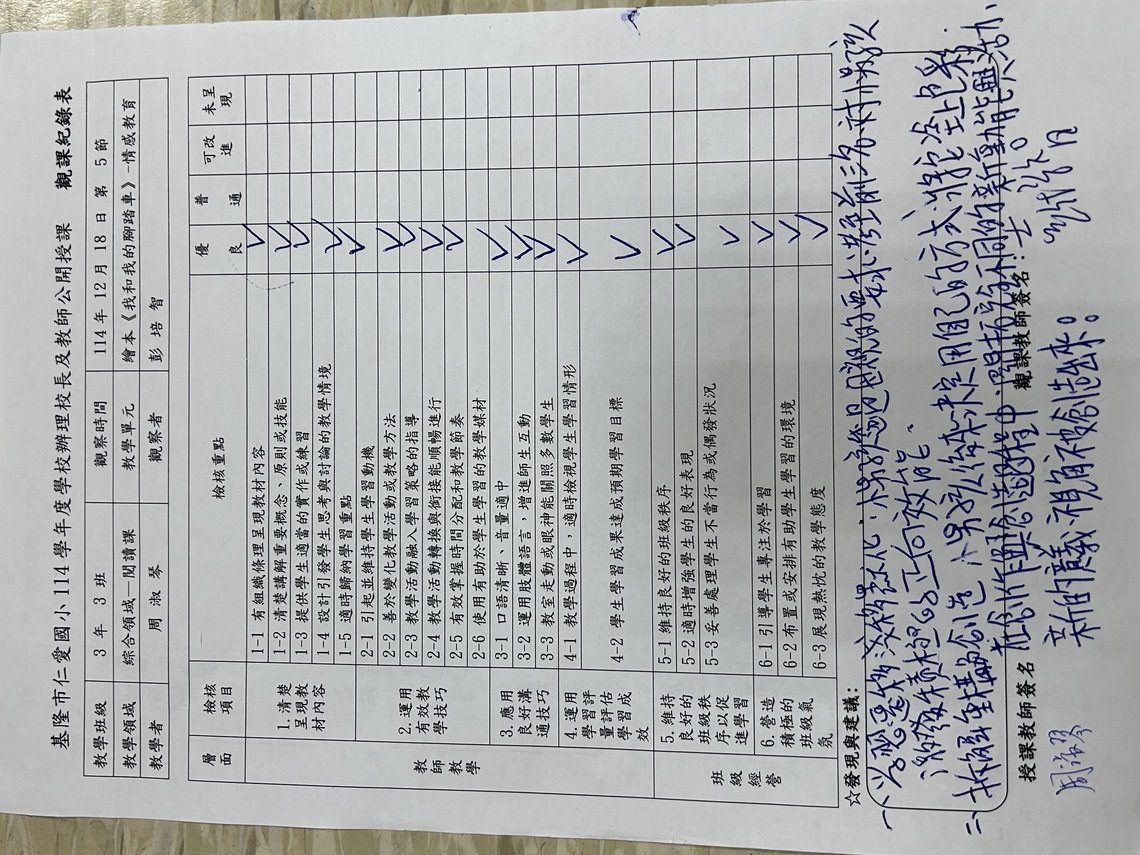 基隆市仁愛國小 114 學年度學校辦理校長及教師公開授課　觀課紀錄表
教學班級 3 年 3 班 觀察時間 114 年 12 月 18 日 第 5 節
教學領域 綜合領域—閱讀課 教學單元 繪本《我和我的腳踏車》-情感教育
教學者 周淑琴 觀察者 彭培智
層面 檢核項目 檢核重點 優良 普通 可改進 未呈現
教師教學
1.清楚呈現教材內容
1-1 有組織條理呈現教材內容 ✓
1-2 清楚講解重要概念、原則或技能 ✓
1-3 提供學生適當的實作或練習 ✓
1-4 設計引發學生思考與討論的教學情境 ✓
1-5 適時歸納學習重點 ✓
2.運用有效教學技巧
2-1 引起並維持學生學習動機
2-2 善於變化教學活動或教學方法 ✓
2-3 教學活動融入學習策略的指導 ✓
2-4 教學活動轉換與銜接能順暢進行 ✓
2-5 有效掌握時間分配和教學節奏 ✓
2-6 使用有助於學生學習的教學媒材
3.應用良好溝通技巧
3-1 口語清晰、音量適中 ✓
3-2 運用肢體語言，增進師生互動 ✓
3-3 教室走動或眼神能關照多數學生 ✓
4.運用學習評量評估學習成效
4-1 教學過程中，適時檢視學生學習情形 ✓
4-2 學生學習成果達成預期學習目標 ✓
班級經營
5.維持良好的班級秩序以促進學習
5-1 維持良好的班級秩序 ✓
5-2 適時增強學生的良好表現 ✓
5-3 妥善處理學生不當行為或偶發狀況 ✓
6.營造積極的班級氣氛
6-1 引導學生專注於學習 ✓
6-2 布置或安排有助學生學習的環境 ✓
6-3 展現熱忱的教學態度 ✓
☆發現與建議：
的要求
激發積極的正向效能、
二、拆解重構創造，用自己的方式
在創作與過程中，不同的新動能與活力，
新的視角被創造出來。
授課教師簽名 觀課教師簽名：